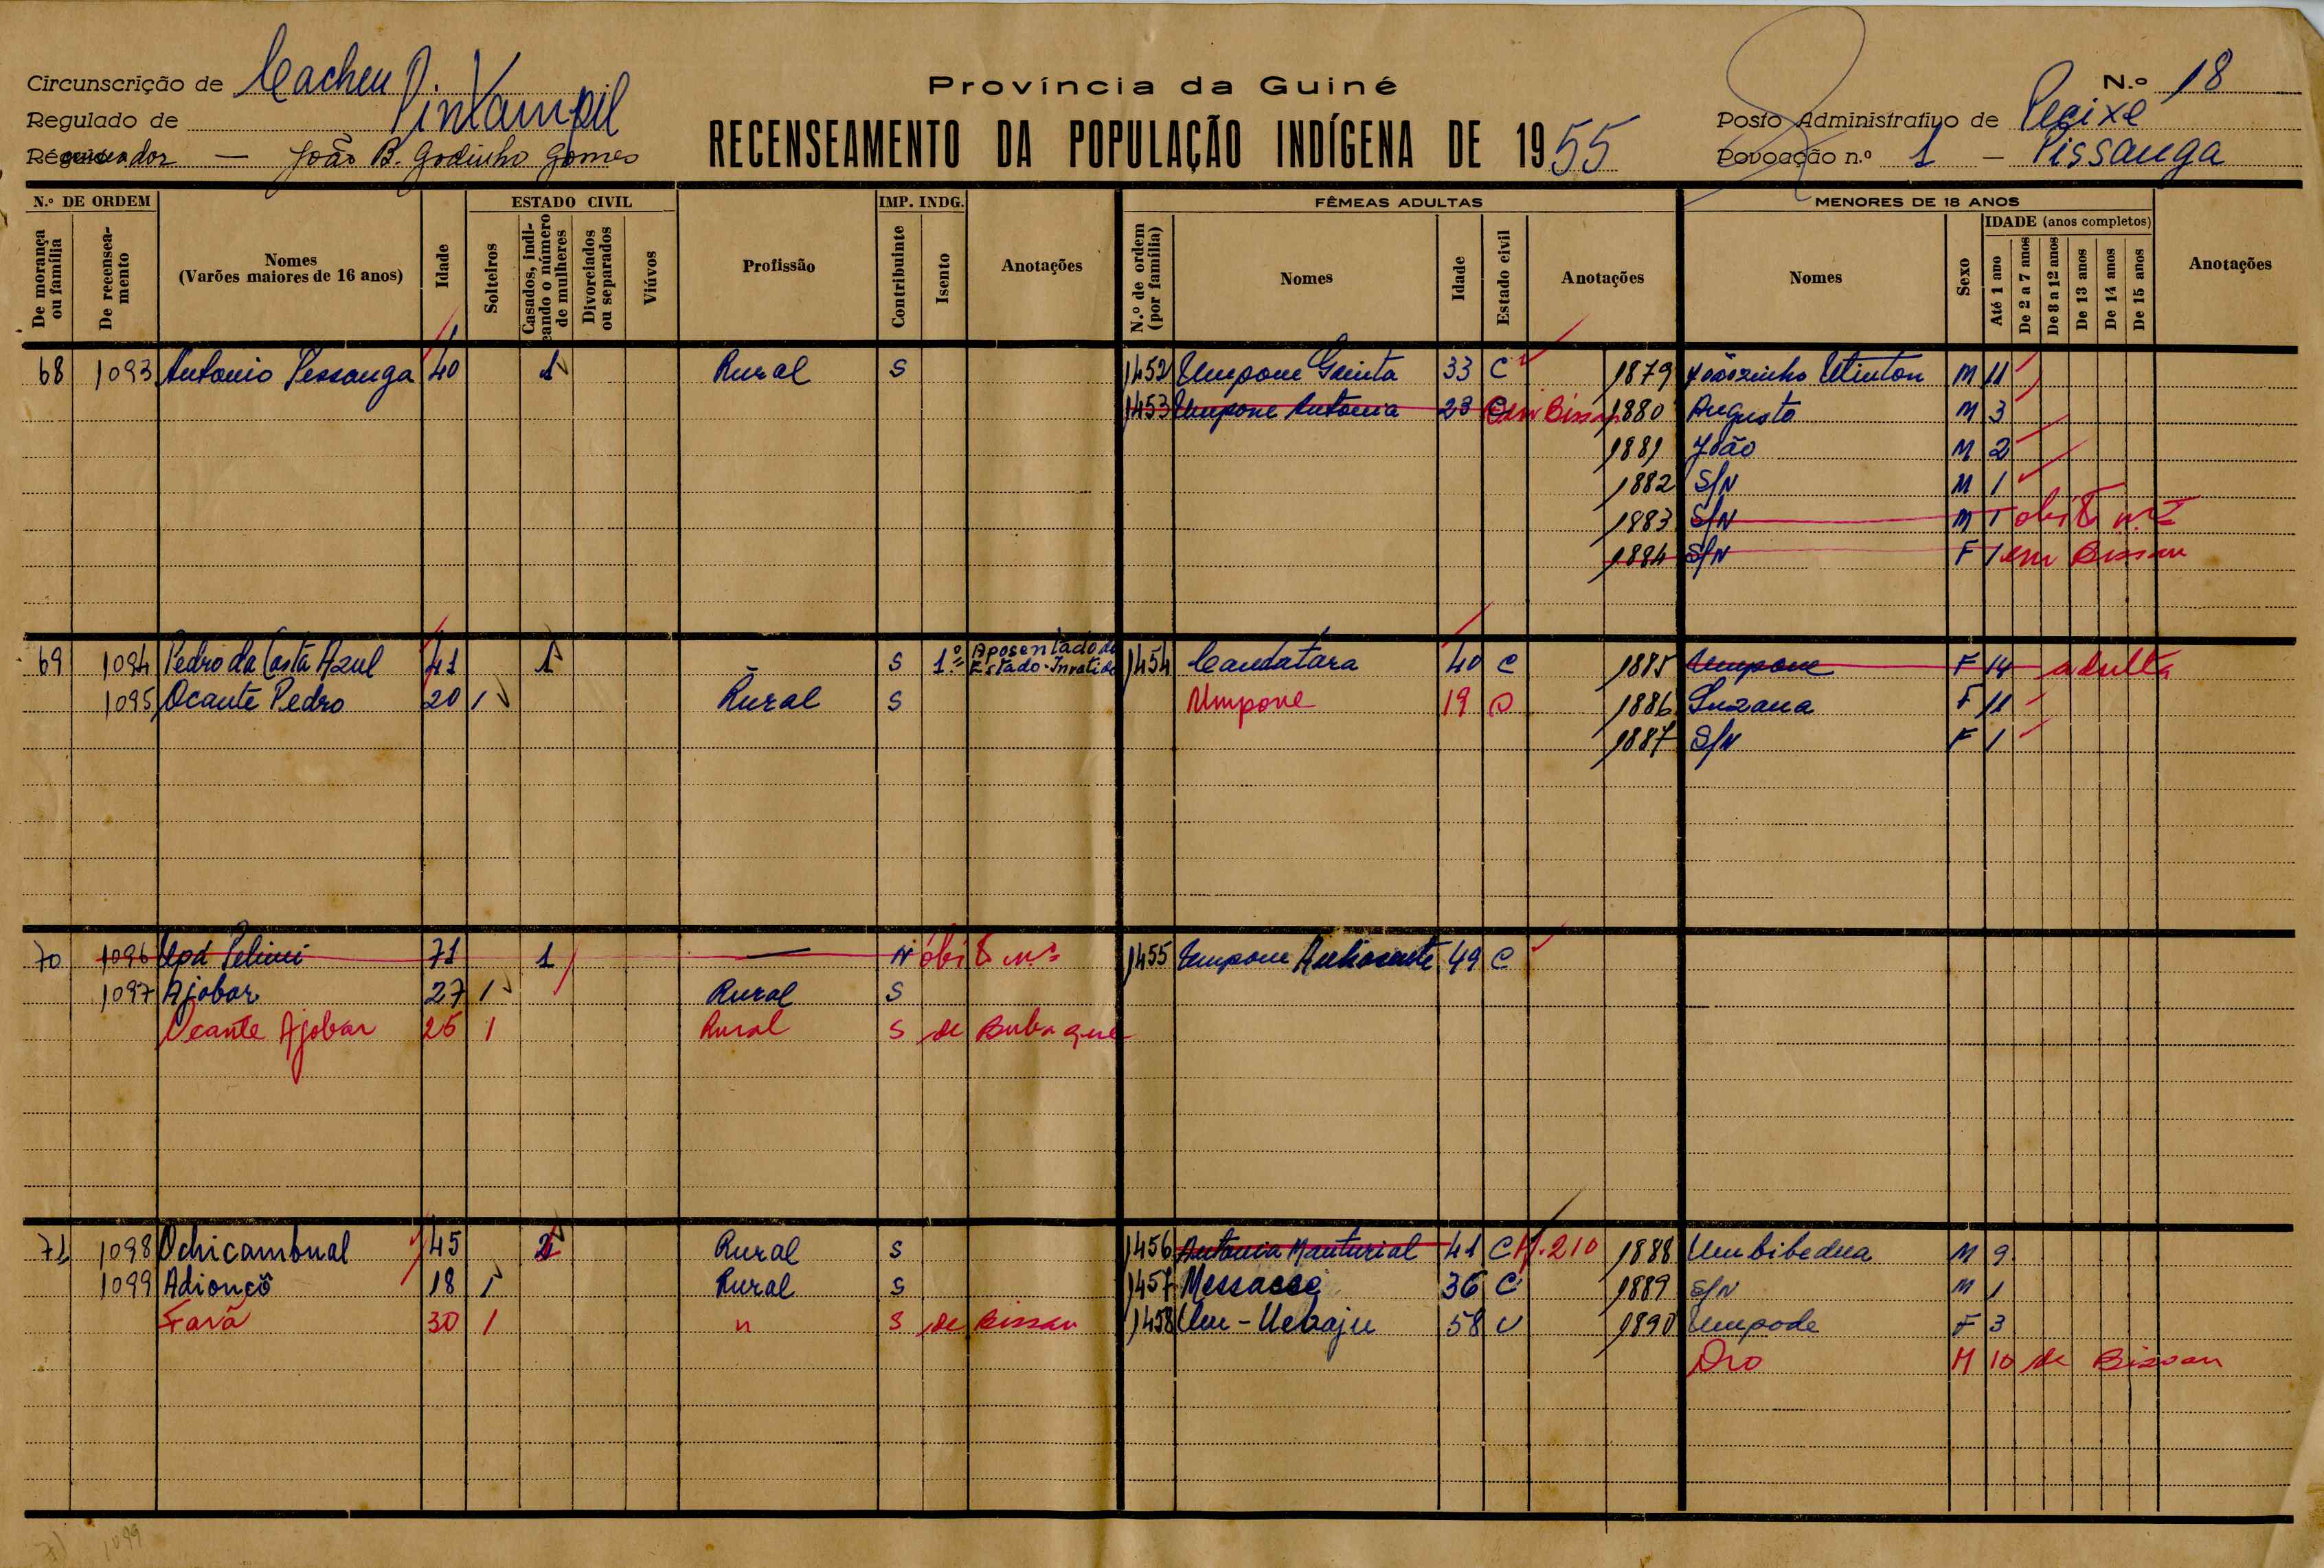 Circunscrição de Cacheu
Regulado de Pintampil
Recenseador — João B. Godinho Gomes
Província da Guiné
RECENSEAMENTO DA POPULAÇÃO INDÍGENA DE 1955
N.º 18
Posto Administrativo de Pecixe
Povoação n.º 1 — Pissanga
N.º DE ORDEM
De morança ou família
De recenseamento
Nomes
(Varões maiores de 16 anos)
Idade
ESTADO CIVIL
Solteiros
Casados, indicando o número de mulheres
Divorciados ou separados
Viúvos
Profissão
IMP. INDG.
Contribuinte
Isento
Anotações
FÊMEAS ADULTAS
N.º de ordem (por família)
Nomes
Idade
Estado civil
Anotações
MENORES DE 18 ANOS
Nomes
Sexo
IDADE (anos completos)
Até 1 ano
De 2 a 7 anos
De 8 a 12 anos
De 13 anos
De 14 anos
De 15 anos
Anotações
68 1093 Antonio Pessanga 40 1 Rural S 1452 Umpone Guinta 33 C 1879 Joãozinho M 11
1453 Umpone Antonia 23 C em Bissau 1880 Augusto M 3
1881 João M 2
1882 S/N M 1
1883 S/N M 1 obito n.º
1884 S/N F 1 em Bissau
69 1094 Pedro da Costa Azul 41 1 S 1.º Aposentado do Estado-Invalido 1454 Candatara 40 C 1885 Umpone F 14 adulta
1095 Ocante Pedro 20 1 Rural S Umpone 19 1886 Suzana F 11
1887 S/N F 1
70 1096 Upa 71 1 — N óbito n.º 1455 Umpone 49 C
1097 Ajobar 27 1 Rural S
Ocante Ajobar 25 1 Rural S de Bubaque
71 1098 Ochicambual 45 2 Rural S 1456 Antonia Manturial 41 C M. 210 1888 Umbibedna M 9
1099 Adioncô 18 1 Rural S 1457 Messacee 36 C 1889 S/N M 1
Farã 30 1 " S de Bissau 1458 Um - 58 V 1890 Umpode F 3
Oro M 10 de Bissau
71 1099